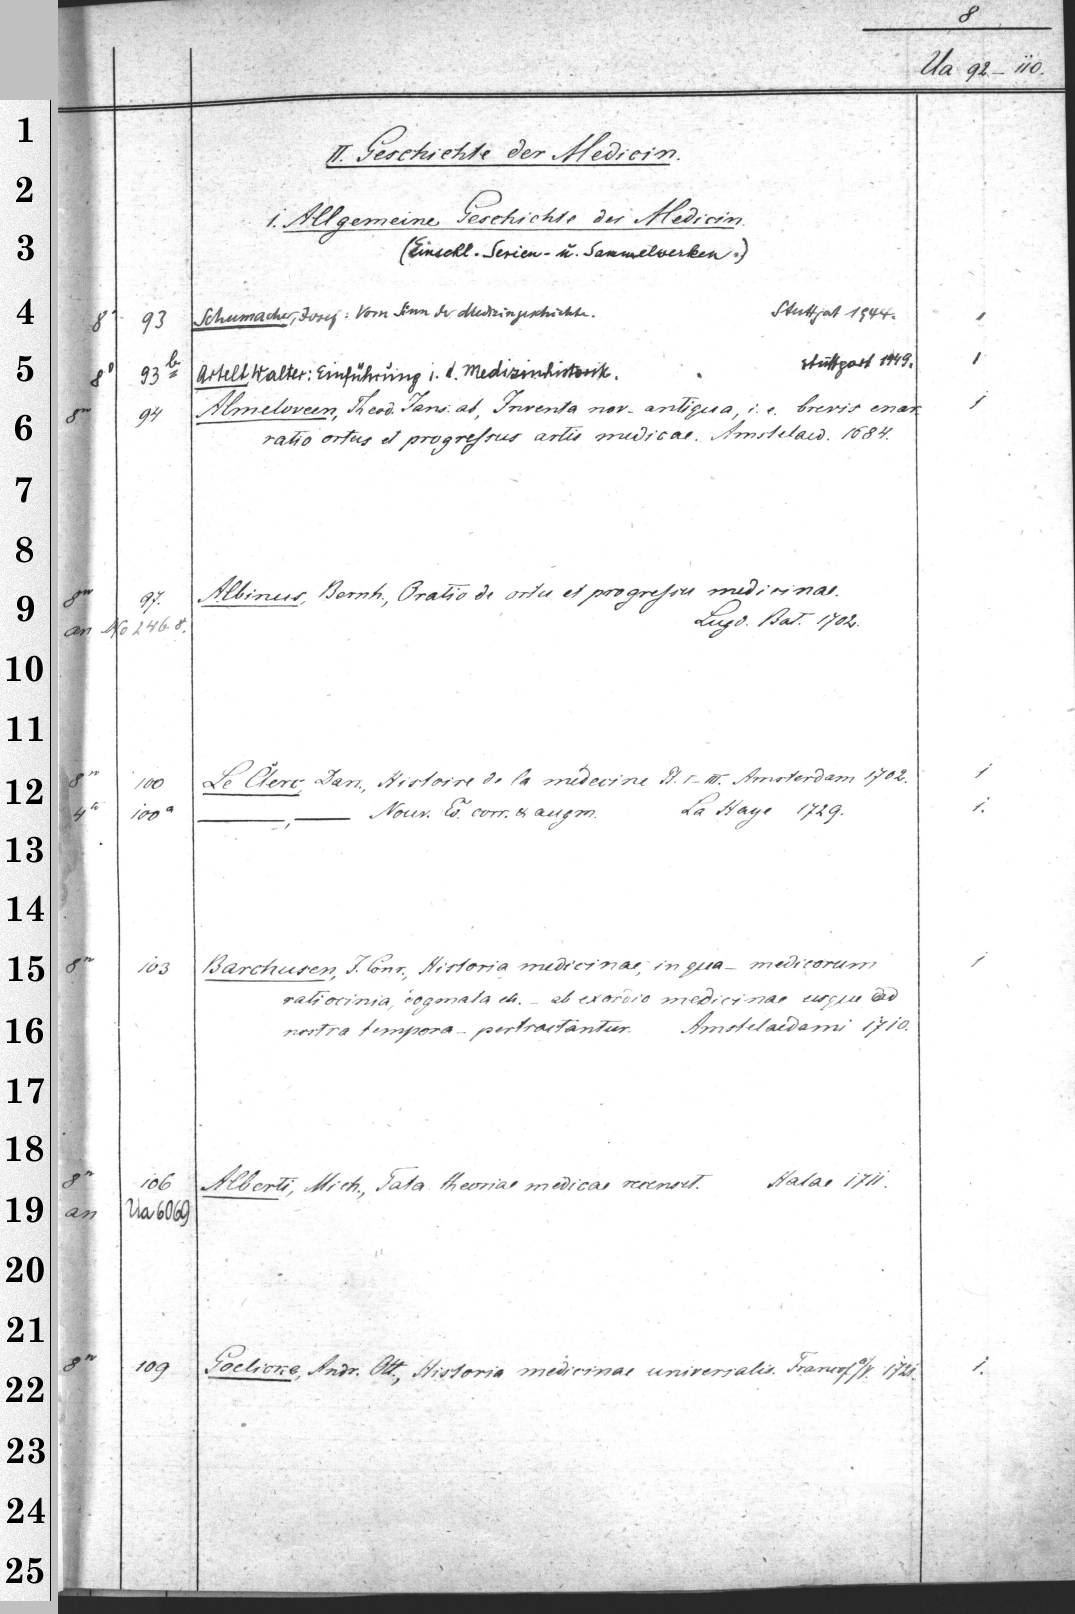 8
Ua 92 - 110.
II. Geschichte der Medicin.
1. Allgemeine Geschichte der Medicin.
(Einschl. Serien- u. Sammelwerken.)
8° 93 Schumacher, Josef: Vom Sinn der Medizingeschichte. Stuttgat 1944. 1
8° 93b Artelt, Walter: Einführung i. d. Medizinhistorik. Stuttgart 1949. 1
8vo 94 Almeloveen, Theod. Jans. ab, Inventa nov-antiqua, i. e. brevis enar-
ratio ortus et progressus artis medicae. Amstelaed. 1684. 1
8vo 97. Albinus, Bernh., Oratio de ortu et progressu medicinae.
an No 246. 8. Lugd. Bat. 1702.
8vo 100 Le Clerc, Dan., Histoire de la médecine Pt. I-III. Amsterdam 1702. 1
4to 100a ———, —— Nouv. Éd. corr. & augm. La Haye 1729. 1.
8vo 103 Barchusen, J. Conr., Historia medicinae, in qua - medicorum 1
ratiocinia, dogmata etc. - ab exordio medicinae usque ad
nostra tempora - pertractantur. Amstelaedami 1710.
8vo 106 Alberti, Mich., Fata theoriae medicae recenset. Halae 1711.
an Ua 6069
8vo 109 Goelicke, Andr. Ott., Historia medicinae universalis. Francof. a/V. 1721. 1.
1
2
3
4
5
6
7
8
9
10
11
12
13
14
15
16
17
18
19
20
21
22
23
24
25